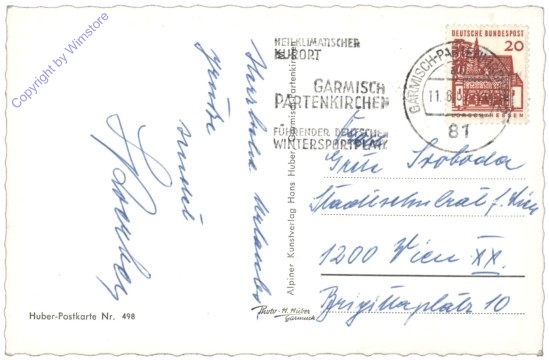 Copyright by Wimstore
HEILKLIMATISCHER
KURORT
GARMISCH
PARTENKIRCHEN
FÜHRENDER DEUTSCHER
WINTERSPORTPLATZ
GARMISCH-PARTENKIRCHEN
11.8.
81
DEUTSCHE BUNDESPOST
20
Herzliche Urlaubs
grüße
sendet
Alpiner Kunstverlag Hans Huber Garmisch-Partenkirchen
Svoboda
Stadtschulrat f. Wien
1200 Wien XX.
Brigittaplatz 10
Photo-H. Huber
Garmisch
Huber-Postkarte Nr. 498